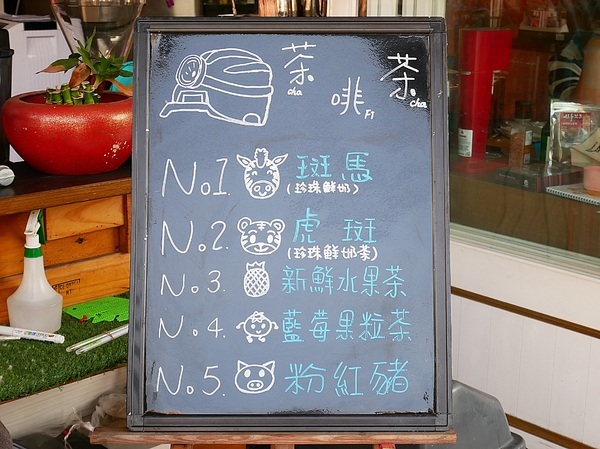 茶 啡 茶
cha Fi cha
No1. 斑馬
(珍珠鮮奶)
No2. 虎斑
(珍珠鮮奶茶)
No3. 新鮮水果茶
No4. 藍莓果粒茶
No5. 粉紅豬